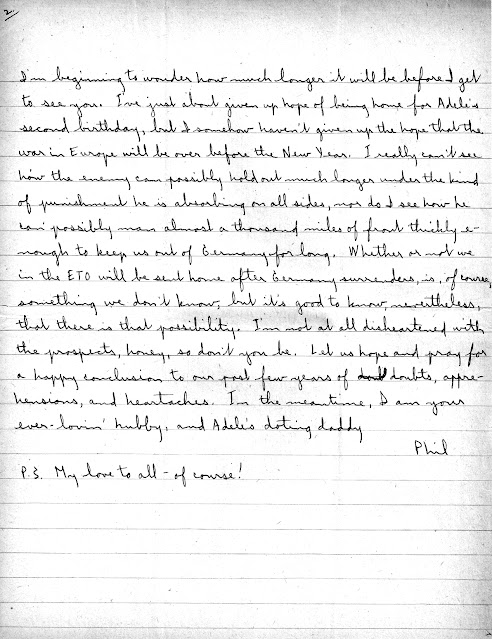 2.
I'm beginning to wonder how much longer it will be before I get
to see you. I've just about given up hope of being home for Adele's
second birthday, but I somehow haven't given up the hope that the
war in Europe will be over before the New Year. I really can't see
how the enemy can possibly hold out much longer under the kind
of punishment he is absorbing on all sides, nor do I see how he
can possibly man almost a thousand miles of front thickly e-
nough to keep us out of Germany for long. Whether or not we
in the ETO will be sent home after Germany surrenders, is, of course,
something we don't know, but it's good to know, nevertheless,
that there is that possibility. I'm not at all disheartened with
the prospects, honey, so don't you be. Let us hope and pray for
a happy conclusion to our past few years of doubts, appre-
hensions, and heartaches. In the meantime, I am your
ever-lovin' hubby, and Adele's doting daddy
Phil
P.S. My love to all - of course!